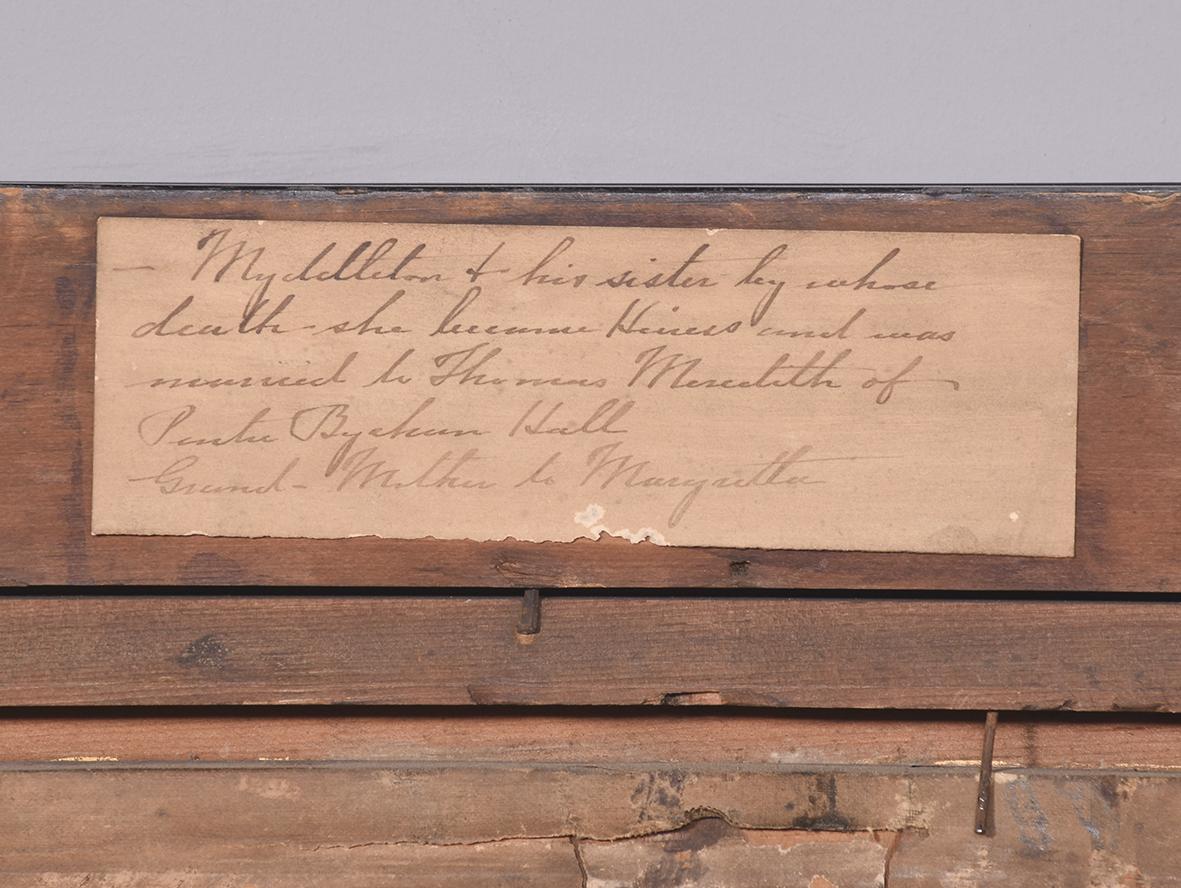 — Myddelleton & his sister by whose
death - she became Heiress and was
married to Thomas Meredith of
Pentre Bychan Hall
Grand - Mother to Margretta